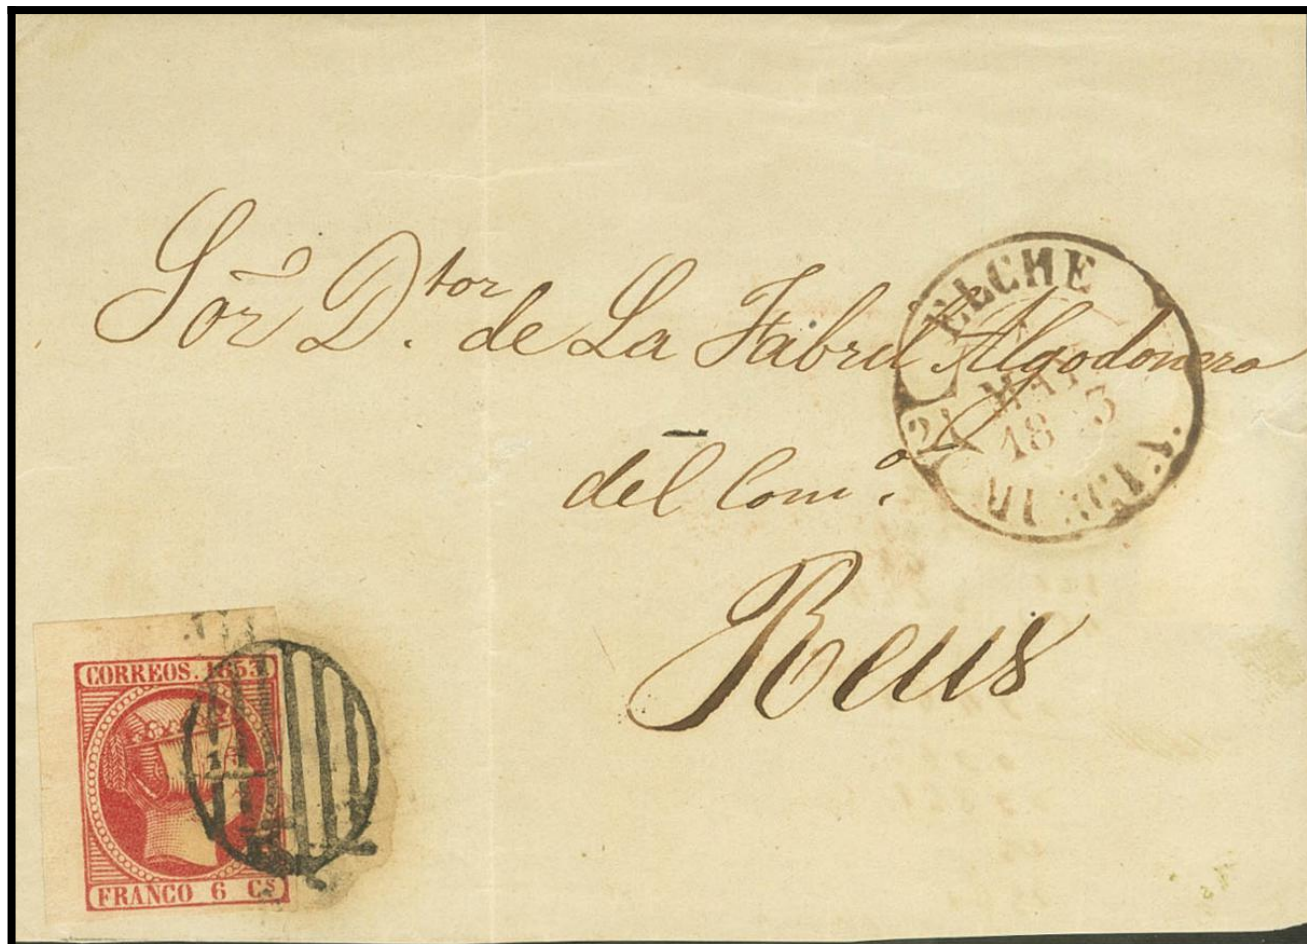 Sor D.tor de La Fabril Algodonera
del Com.o
Reus
ELCHE
21 MAY
1853
MURCIA.
CORREOS. 1853
FRANCO 6 Cs